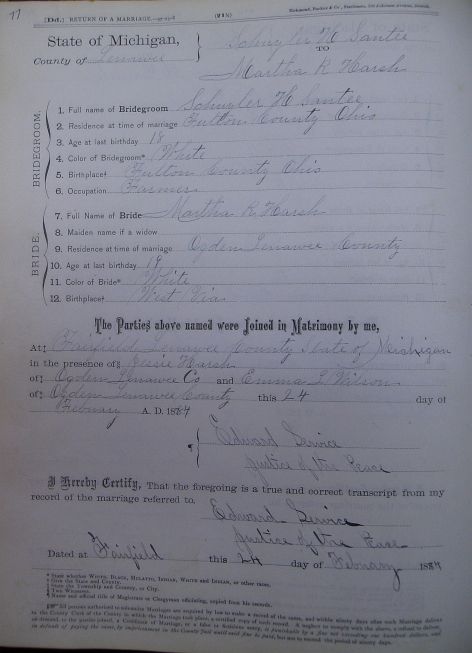 77
[D61.] RETURN OF A MARRIAGE.
(215)
State of Michigan,
County of Lenawee
Schuyler H Santee
TO
Martha R Harsh
BRIDEGROOM.
1. Full name of Bridegroom Schuyler H Santee
2. Residence at time of marriage Fulton County Ohio
3. Age at last birthday 18
4. Color of Bridegroom* White
5. Birthplace† Fulton County Ohio
6. Occupation Farmer
BRIDE.
7. Full Name of Bride Martha R Harsh
8. Maiden name if a widow
9. Residence at time of marriage Ogden Lenawee County
10. Age at last birthday 19
11. Color of Bride* White
12. Birthplace† West Via
The Parties above named were Joined in Matrimony by me,
At‡ Fairfield Lenawee County State of Michigan
in the presence of§ Jessie Harsh
of‡ Ogden Lenawee Co and Emma L Wilson
of‡ Ogden Lenawee County this 24 day of
February A. D. 1884
Edward Service
Justice of the Peace
I Hereby Certify, That the foregoing is a true and correct transcript from my
record of the marriage referred to.
Edward Service
Justice of the Peace
Dated at Fairfield this 24 day of February 1884
* State whether WHITE, BLACK, MULATTO, INDIAN, WHITE and INDIAN, or other races.
† Give the State and County.
‡ State the Township and County, or City.
§ Two Witnesses.
Name and official title of Magistrate or Clergyman officiating, copied from his records.